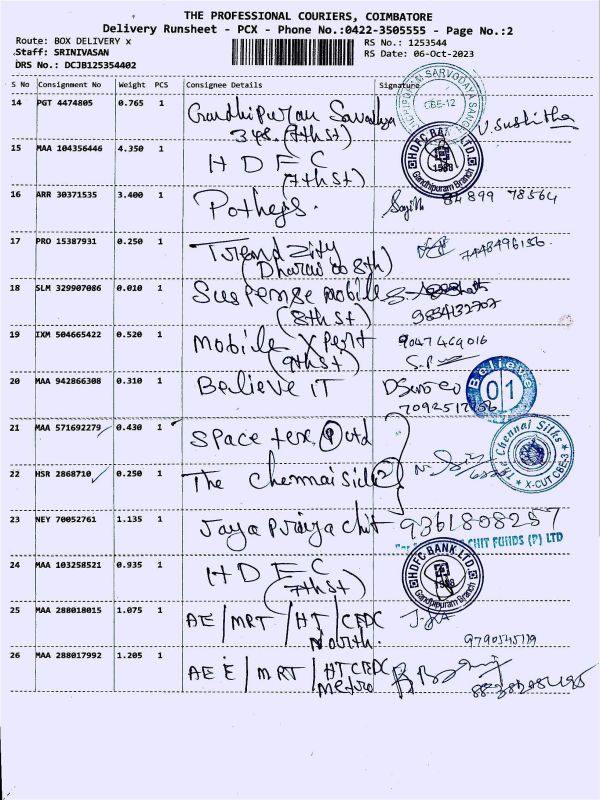 THE PROFESSIONAL COURIERS, COIMBATORE
Delivery Runsheet - PCX - Phone No.:0422-3505555 - Page No.:2
Route: BOX DELIVERY x
RS No.: 1253544
Staff: SRINIVASAN
RS Date: 06-Oct-2023
DRS No.: DCJB125354402
S No Consignment No Weight PCS Consignee Details Signature
14 PGT 4474805 0.765 1 Gandhipuram
348. (7th st)
CBE-12
15 MAA 104356446 4.350 1 HDFC
(7th st)
HDFC BANK LTD.
Gandhipuram Branch
16 ARR 30371535 3.400 1 Potheys. 84899 78564
17 PRO 15387931 0.250 1 Trend zity
7448496156.
18 SLM 329907086 0.010 1 Suspense mobile
(8th st)
19 IXM 504665422 0.520 1 Mobile Xpert 9047469016
(9th st) S.P
20 MAA 942866308 0.310 1 Believe iT
Believe
01
21 MAA 571692279 0.430 1 Space tex
22 HSR 2868710 0.250 1 The Chennai
The Chennai Silks
X-CUT CBE-3
23 NEY 70052761 1.135 1 Jaya Priya chit 9361808257
CHIT FUNDS (P) LTD
24 MAA 103258521 0.935 1 HDFC
(7th st)
HDFC BANK LTD.
Gandhipuram Branch
25 MAA 288018015 1.075 1 AE / MRT / HT / CEDC
North.
26 MAA 288017992 1.205 1 AEE / MRT / HT CEDC
metro